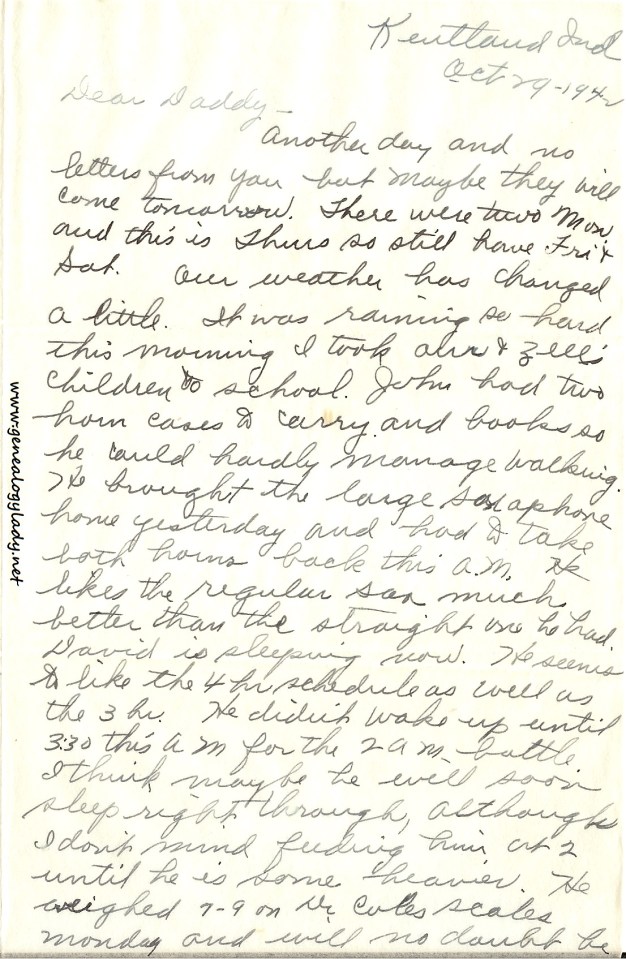 Kentland Ind
Oct 29-1942
Dear Daddy-
Another day and no
letters from you but maybe they will
come tomorrow. There were two Mon
and this is Thurs so still have Fri &
Sat. Our weather has changed
a little. It was raining so hard
this morning I took our & Zell's
children to school. John had two
horn cases to carry and books so
he could hardly manage walking.
He brought the large saxaphone
home yesterday and had to take
both horns back this A.M. He
likes the regular sax much
better than the straight one he had.
David is sleeping now. He seems
to like the 4 hr schedule as well as
the 3 hr. He didn't wake up until
3:30 this A M for the 2 a m bottle
I think maybe he will soon
sleep right through, although
I don't mind feeding him at 2
until he is some heavier. He
weighed 7-9 on Dr Coles scales
Monday and will no doubt be
www.genealogylady.net